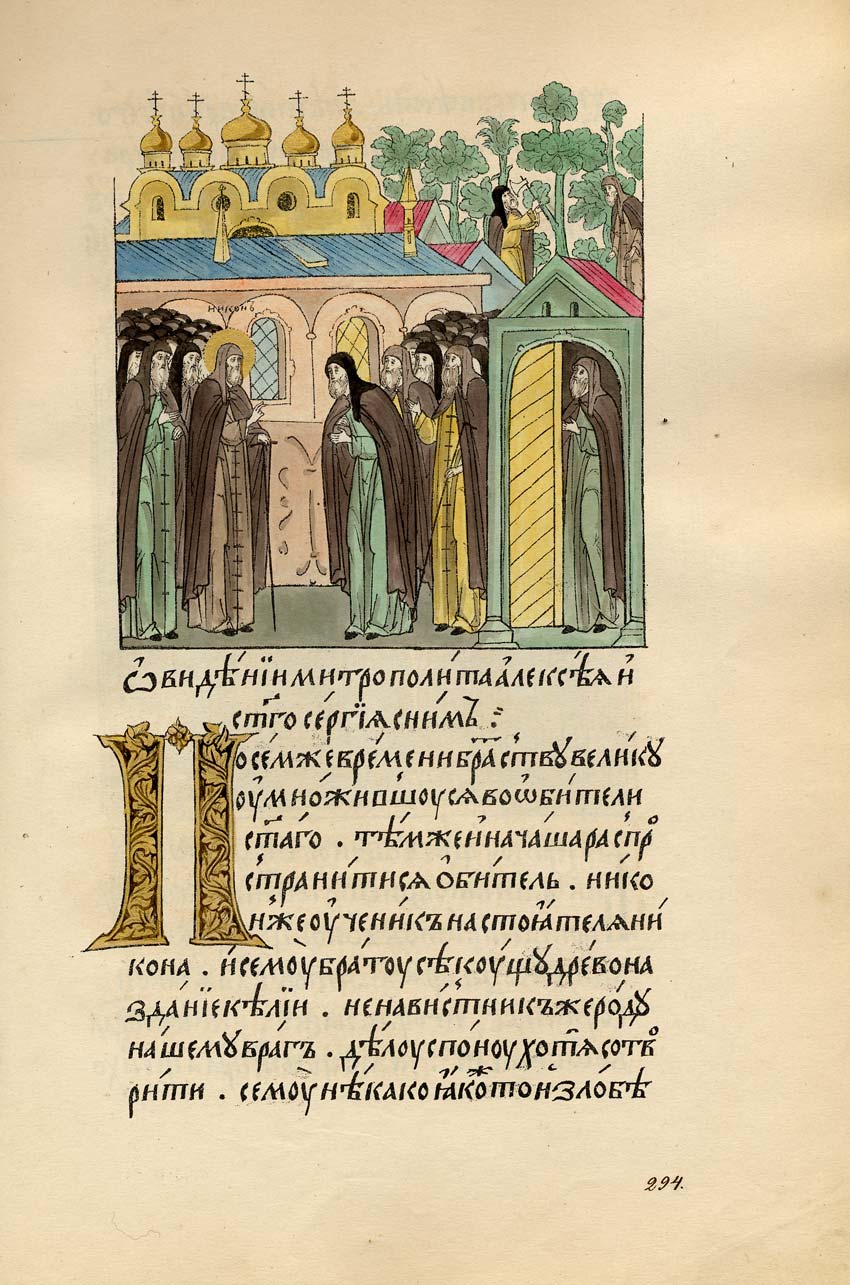 никонъ
Ѡ видѣнїи митрополита алексѣя и
ст҃го сергїѧ с ним꙽ :
По сем же времени братⷭ҇тву велику
оумножившоусѧ во ѡбители
ст҃аго . тѣм же и начаша распроⷭ҇
странитисѧ обитель . нико
и же оученикъ настоꙗтелѧ ни
кона . и семоу братоу сѣкоущу древо на
зданїе кѣлїи . ненавистникъ же роду
нашему врагъ . дѣлу спону хотѧ сотво
рити . семоу нѣкако ꙗко тои злобѣ
294.